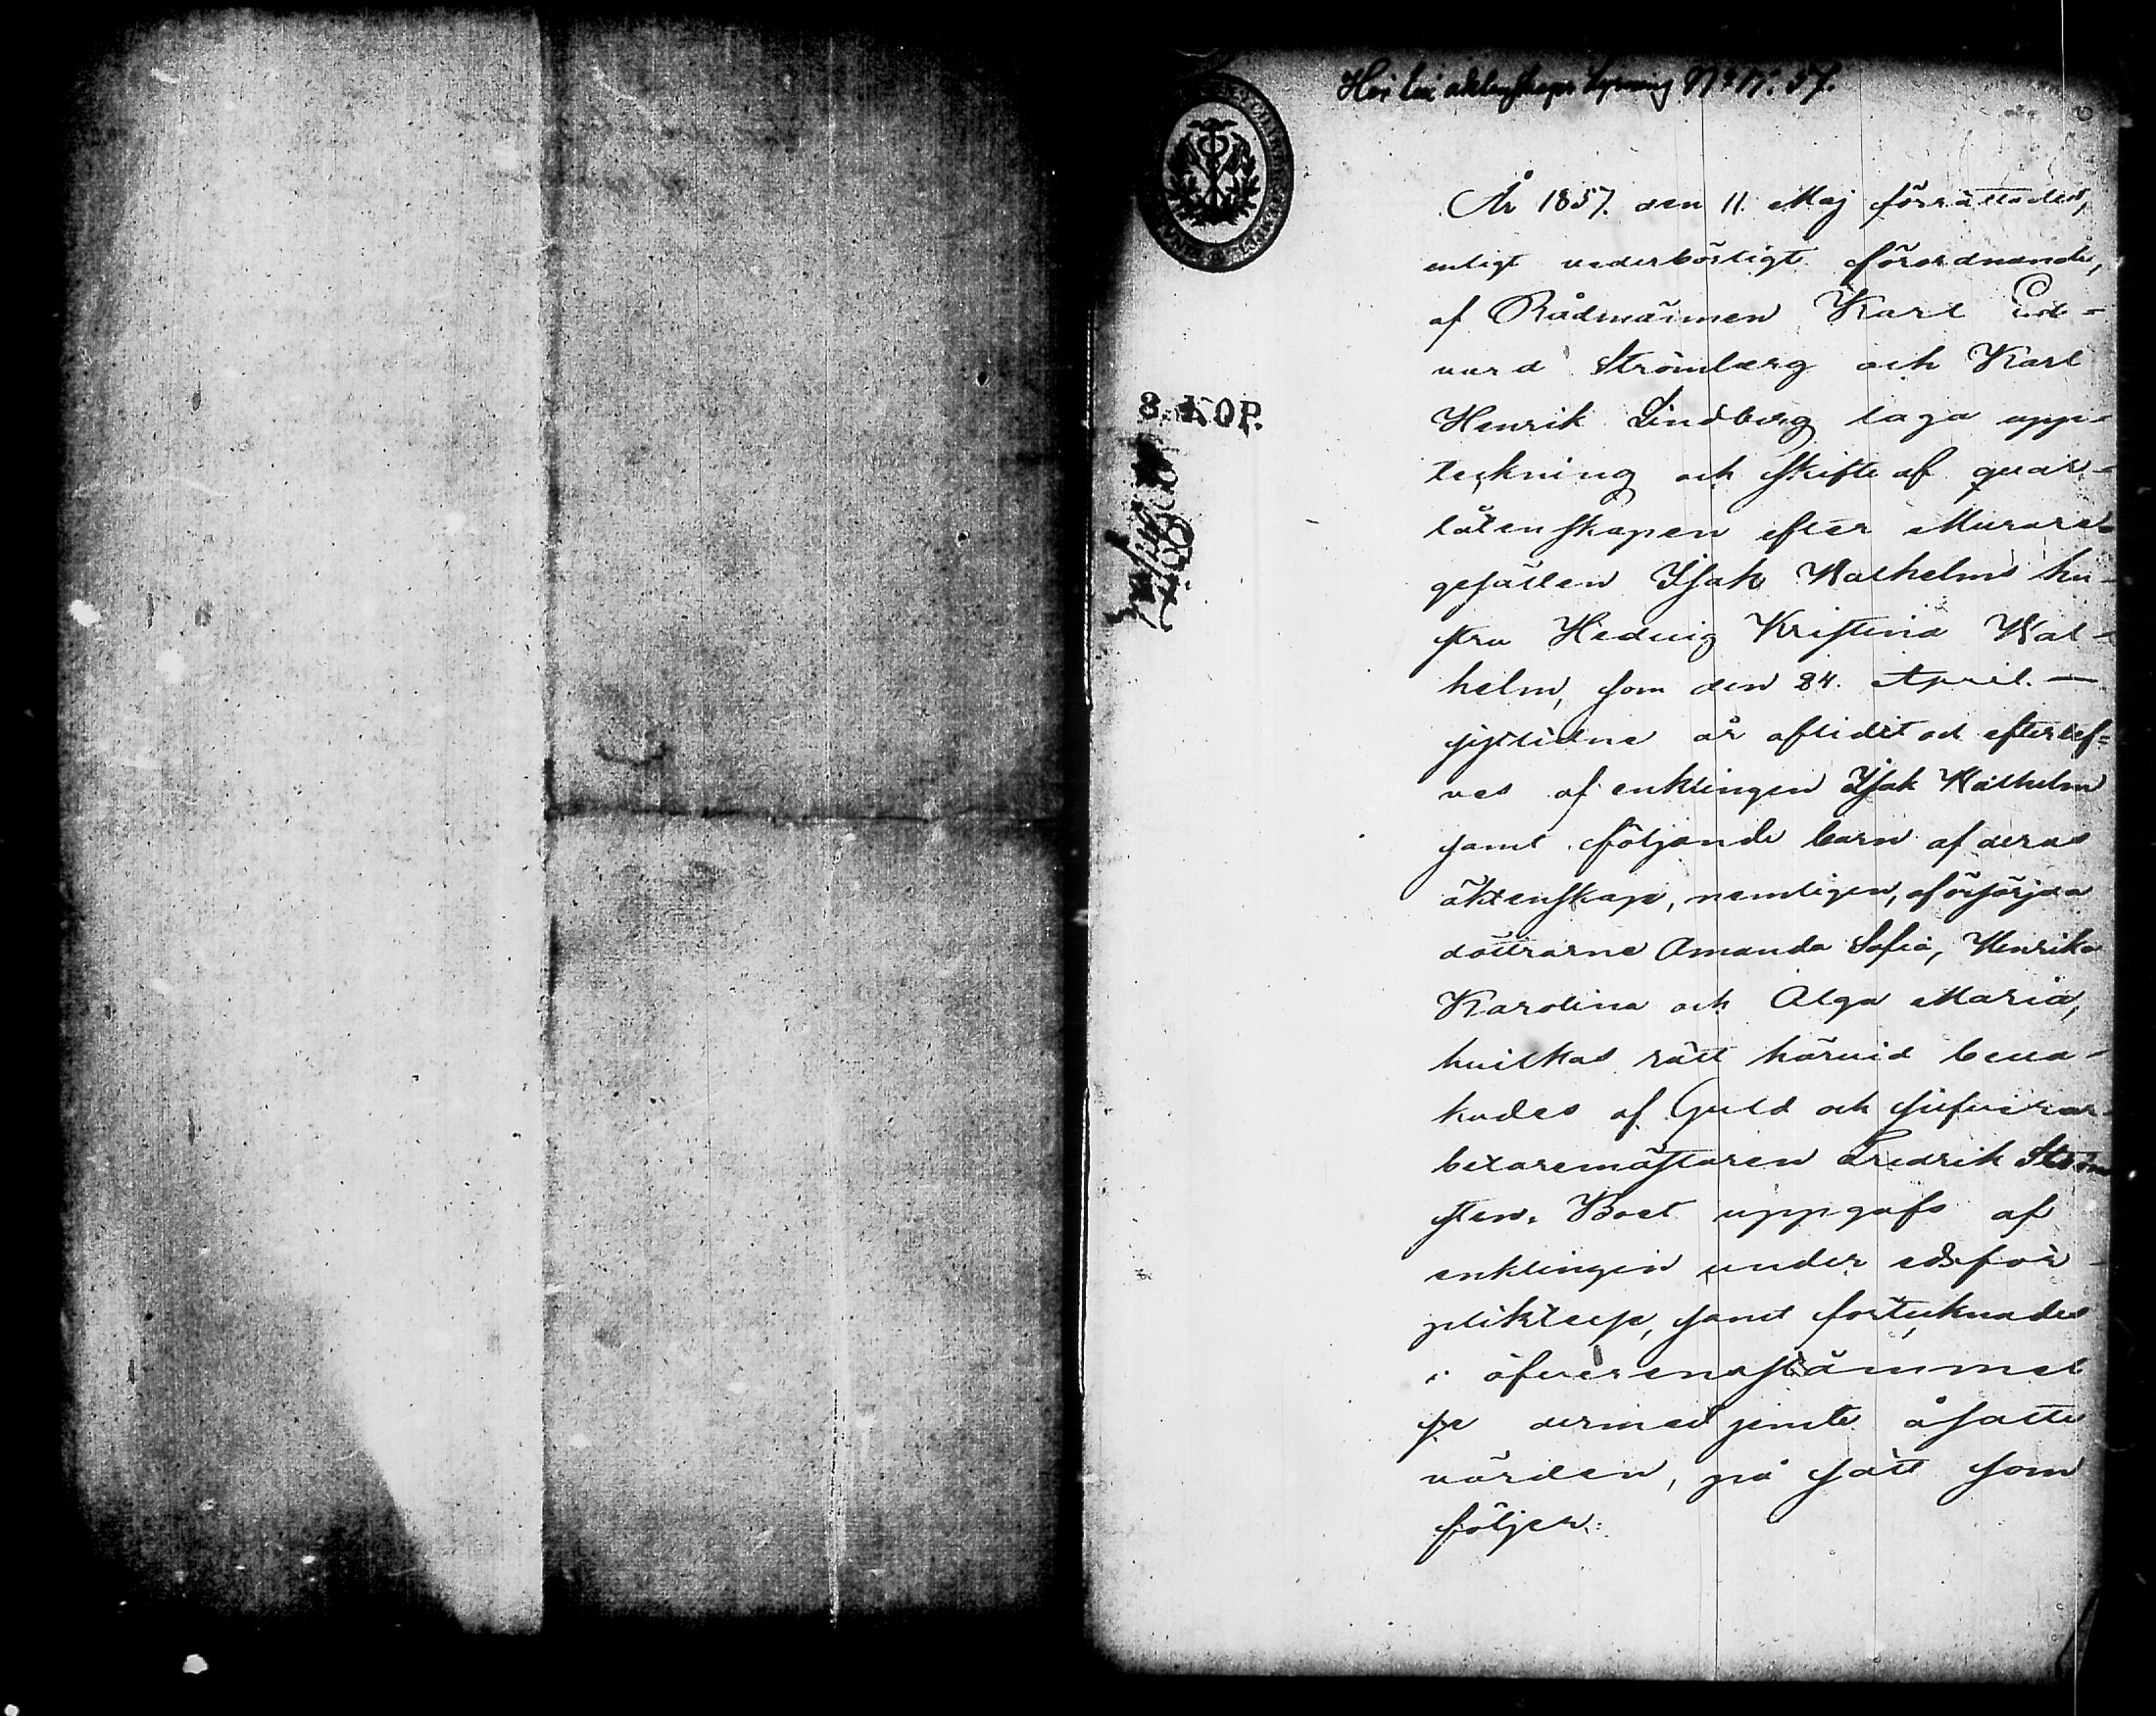 År 1857. den 11. Maj förrättades,
enligt vederbörligt förordnande,
af Rådmännen Karl Ed-
vard Strömberg och Karl
3. KOP.
Henrik Lindberg laga upp-
teckning och skifte af qvar-
låtenskapen efter Murare-
gesällen Isak Walhelms hu-
stru Hedvig Kristina Wal-
helm, som den 24. April. —
sistlidne år aflidit och efterlef-
ves af enklingen Isak Walhelm
samt följande barn af deras
äktenskap, nemligen, oförsörjda
döttrarne Amanda Sofia, Henrika
Karolina och Alga Maria,
hvilkas rätt härvid beva-
kades af Guld och silfverar-
betaremästaren Fredrik Ström
sten. Boet uppgafs af
enklingen under edsför-
pliktelse, samt förtecknades
i öfverensstämmel
se dermed jemte åsatte
värden, på sätt som
följer: